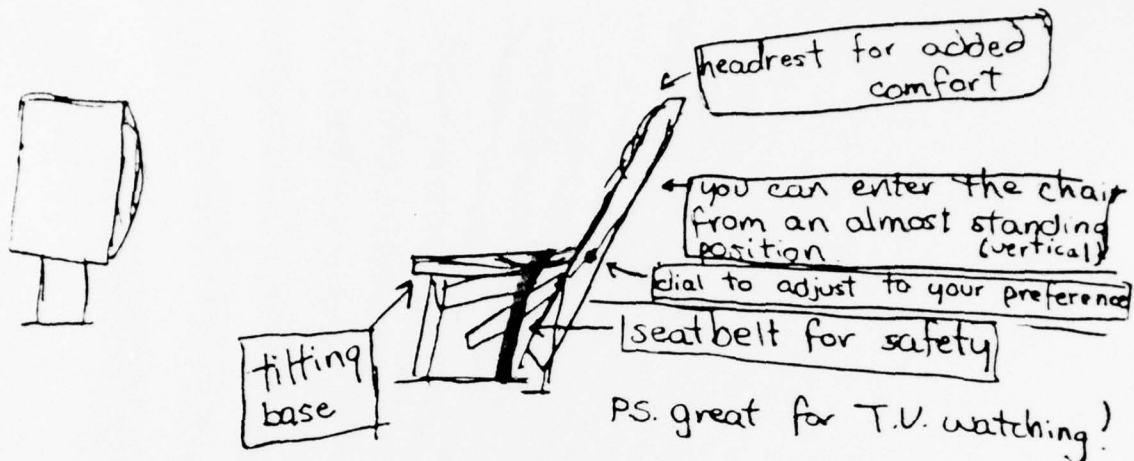 headrest for added
comfort
you can enter the chair
from an almost standing
position (vertical)
dial to adjust to your preference
seatbelt for safety
tilting
base
PS. great for T.V. watching!